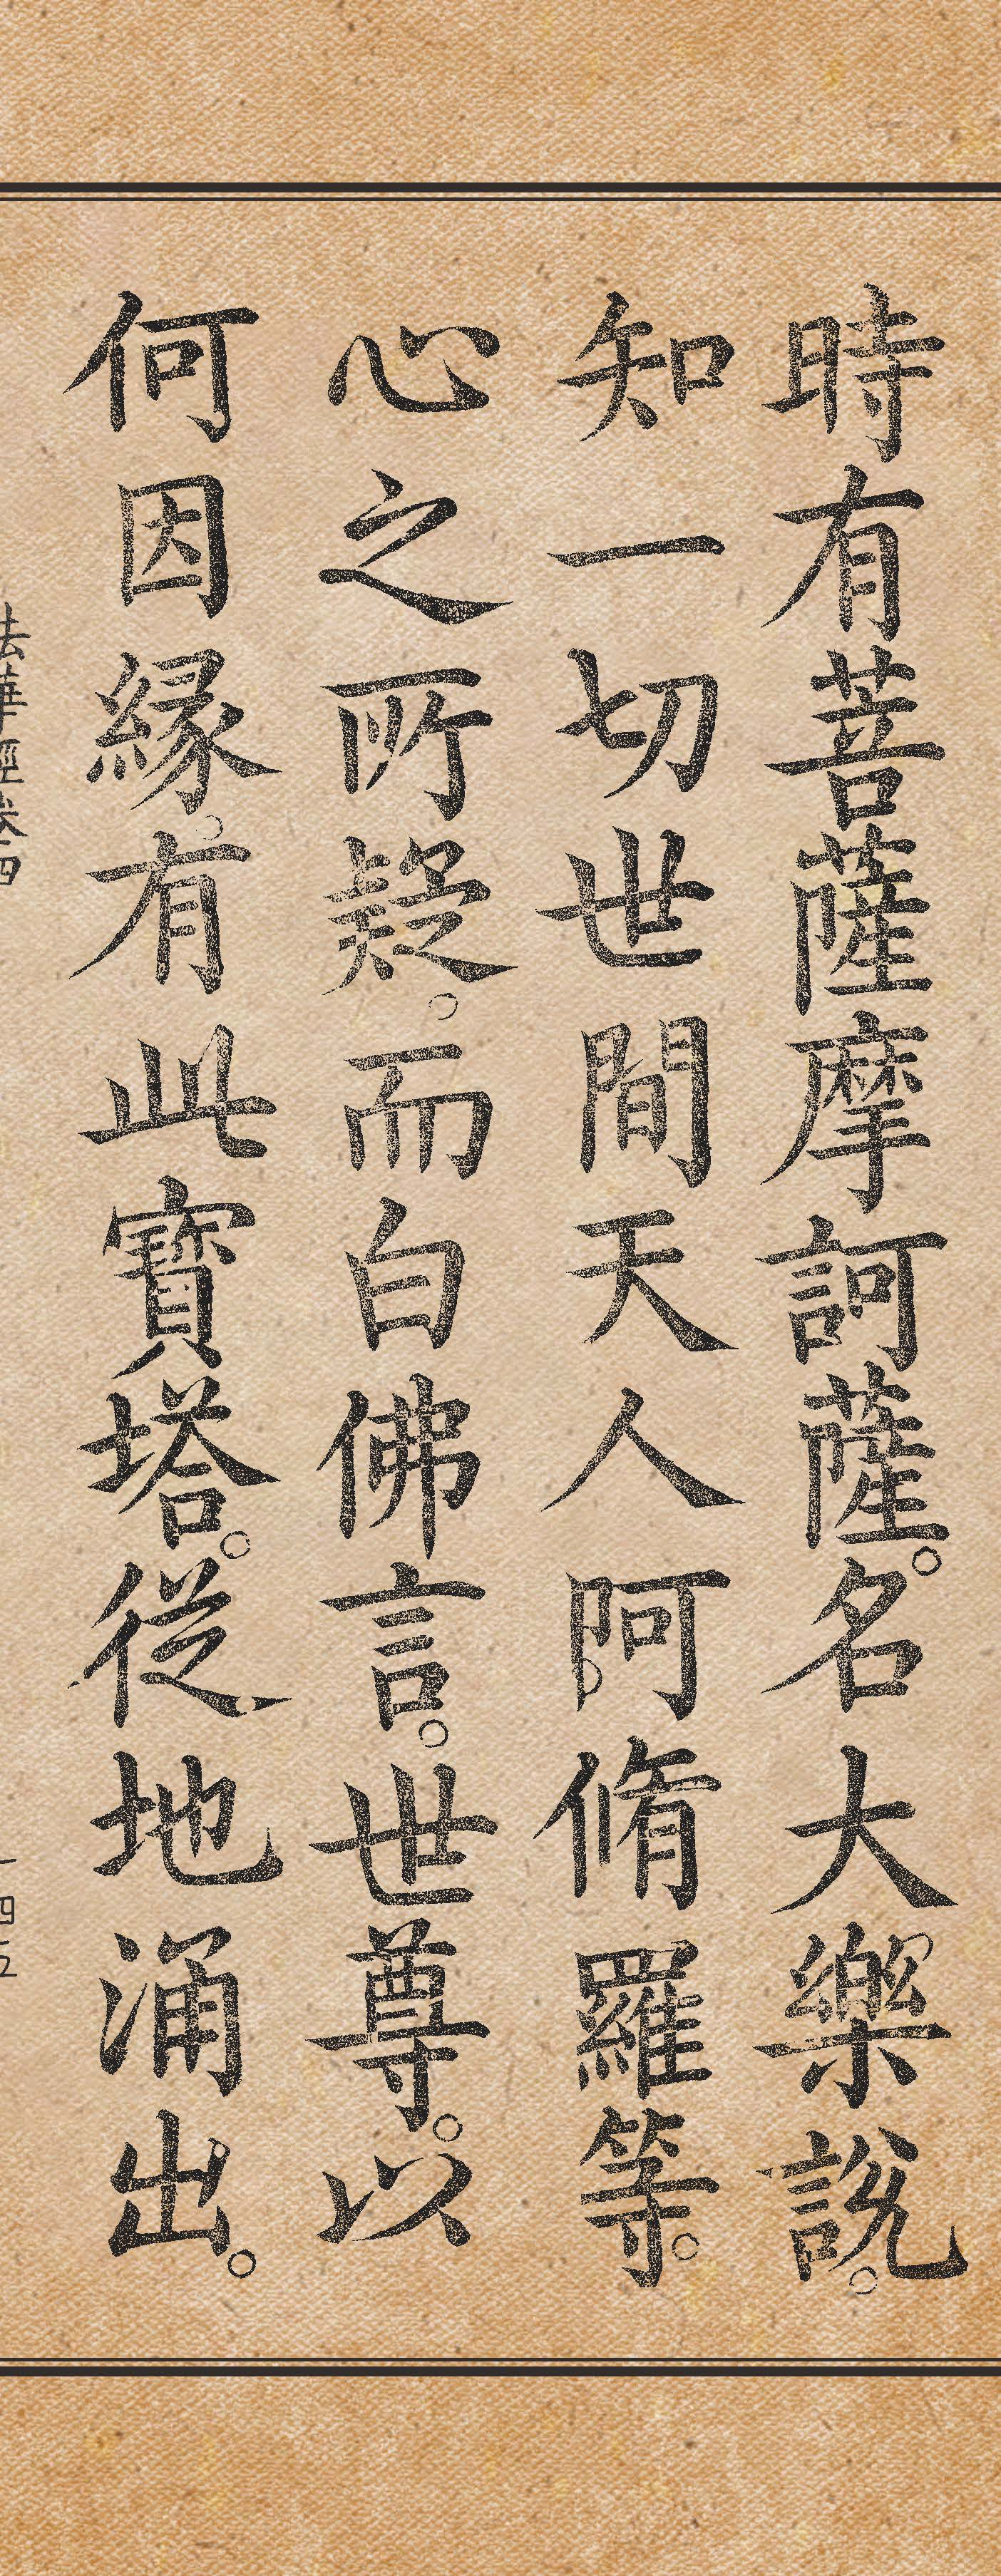 時有菩薩摩訶薩。名大樂說。
知一切世間天人阿脩羅等。
心之所疑。而白佛言。世尊。以
何因緣。有此寶塔。從地涌出。
法華經卷四
一四五